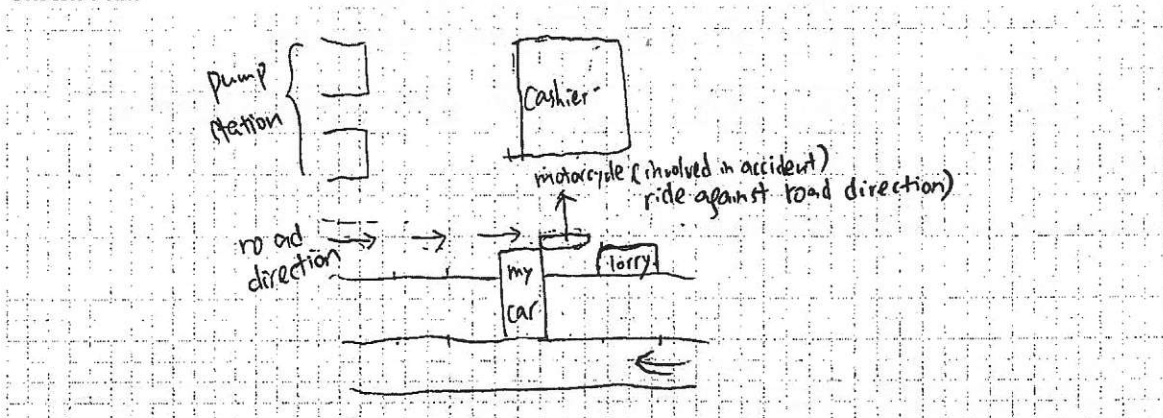 pump
station
Cashier
motorcycle (involved in accident)
ride against road direction)
road
direction
my
car
lorry